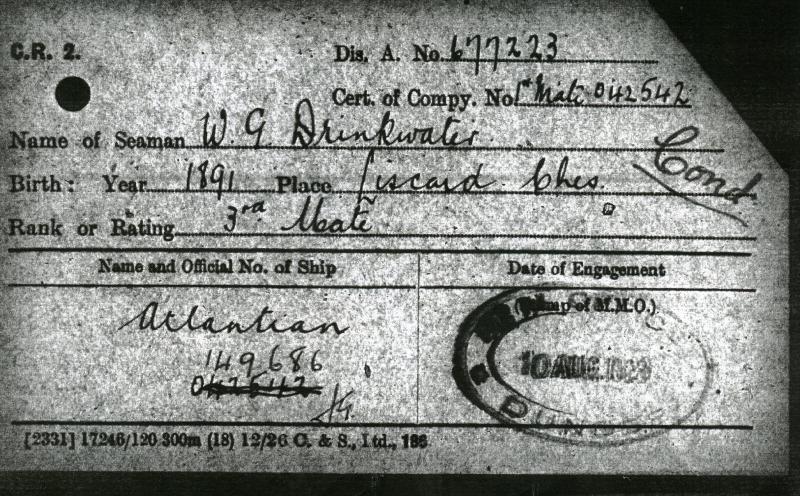 C.R. 2.
Dis. A. No. 677223
Cert. of Compy. No. 1st Mate 042542
Name of Seaman W. G. Drinkwater
Cond
Birth: Year 1891 Place Liscard Ches.
Rank or Rating 3rd Mate
Name and Official No. of Ship
Date of Engagement
(Stamp of M.M.O.)
Atlantian
149686
042542
10 AUG
[2331] 17246/120 300m (18) 12/26 C. & S., Ltd., 186